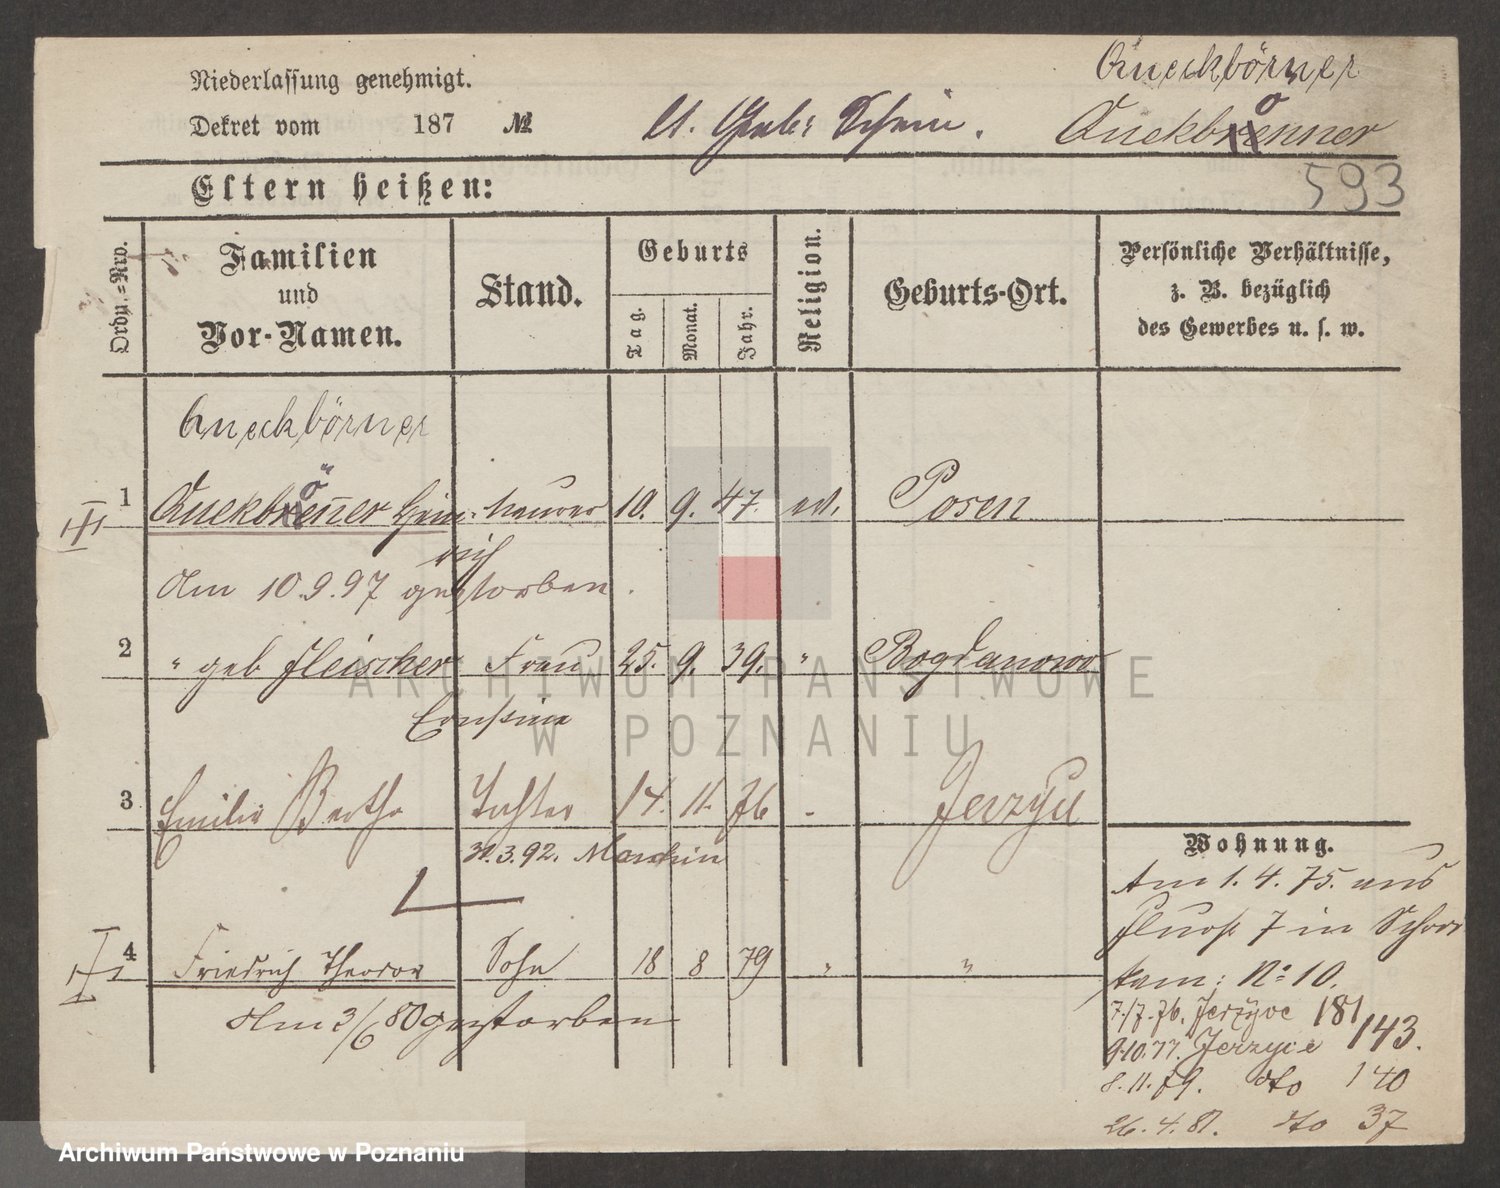 Niederlassung genehmigt.
Dekret vom 187 №
Queckbörner
Quekbrönner
593
Eltern heißen:
Ordn.-Nro.
Familien und Vor-Namen.
Stand.
Geburts
Tag. Monat. Jahr.
Religion.
Geburts-Ort.
Persönliche Verhältnisse,
z. B. bezüglich
des Gewerbes u. s. w.
Queckbörner
1 Quekbrönner Hein- Maurer 10. 9. 47. ev. Posen
rich
Am 10.9.97 gestorben.
2 " geb Fleischer Frau 25. 9. 39. " Bogdanowo
Ernstine
3 Emilie Bertha Tochter 14. 11. 76 - Jerzyce
31.3.92.
4 Friedrich Theodor Sohn 18 8 79 " "
Am 3/6 80 gestorben
Wohnung.
Am 1. 4. 75. aus
7 in
No 10.
7./7. 76. Jerzyce 181
9.10.77. Jerzyce 143.
8. 11. 79. dto 140
26. 4. 81. dto 37
ARCHIWUM PAŃSTWOWE
W POZNANIU
Archiwum Państwowe w Poznaniu